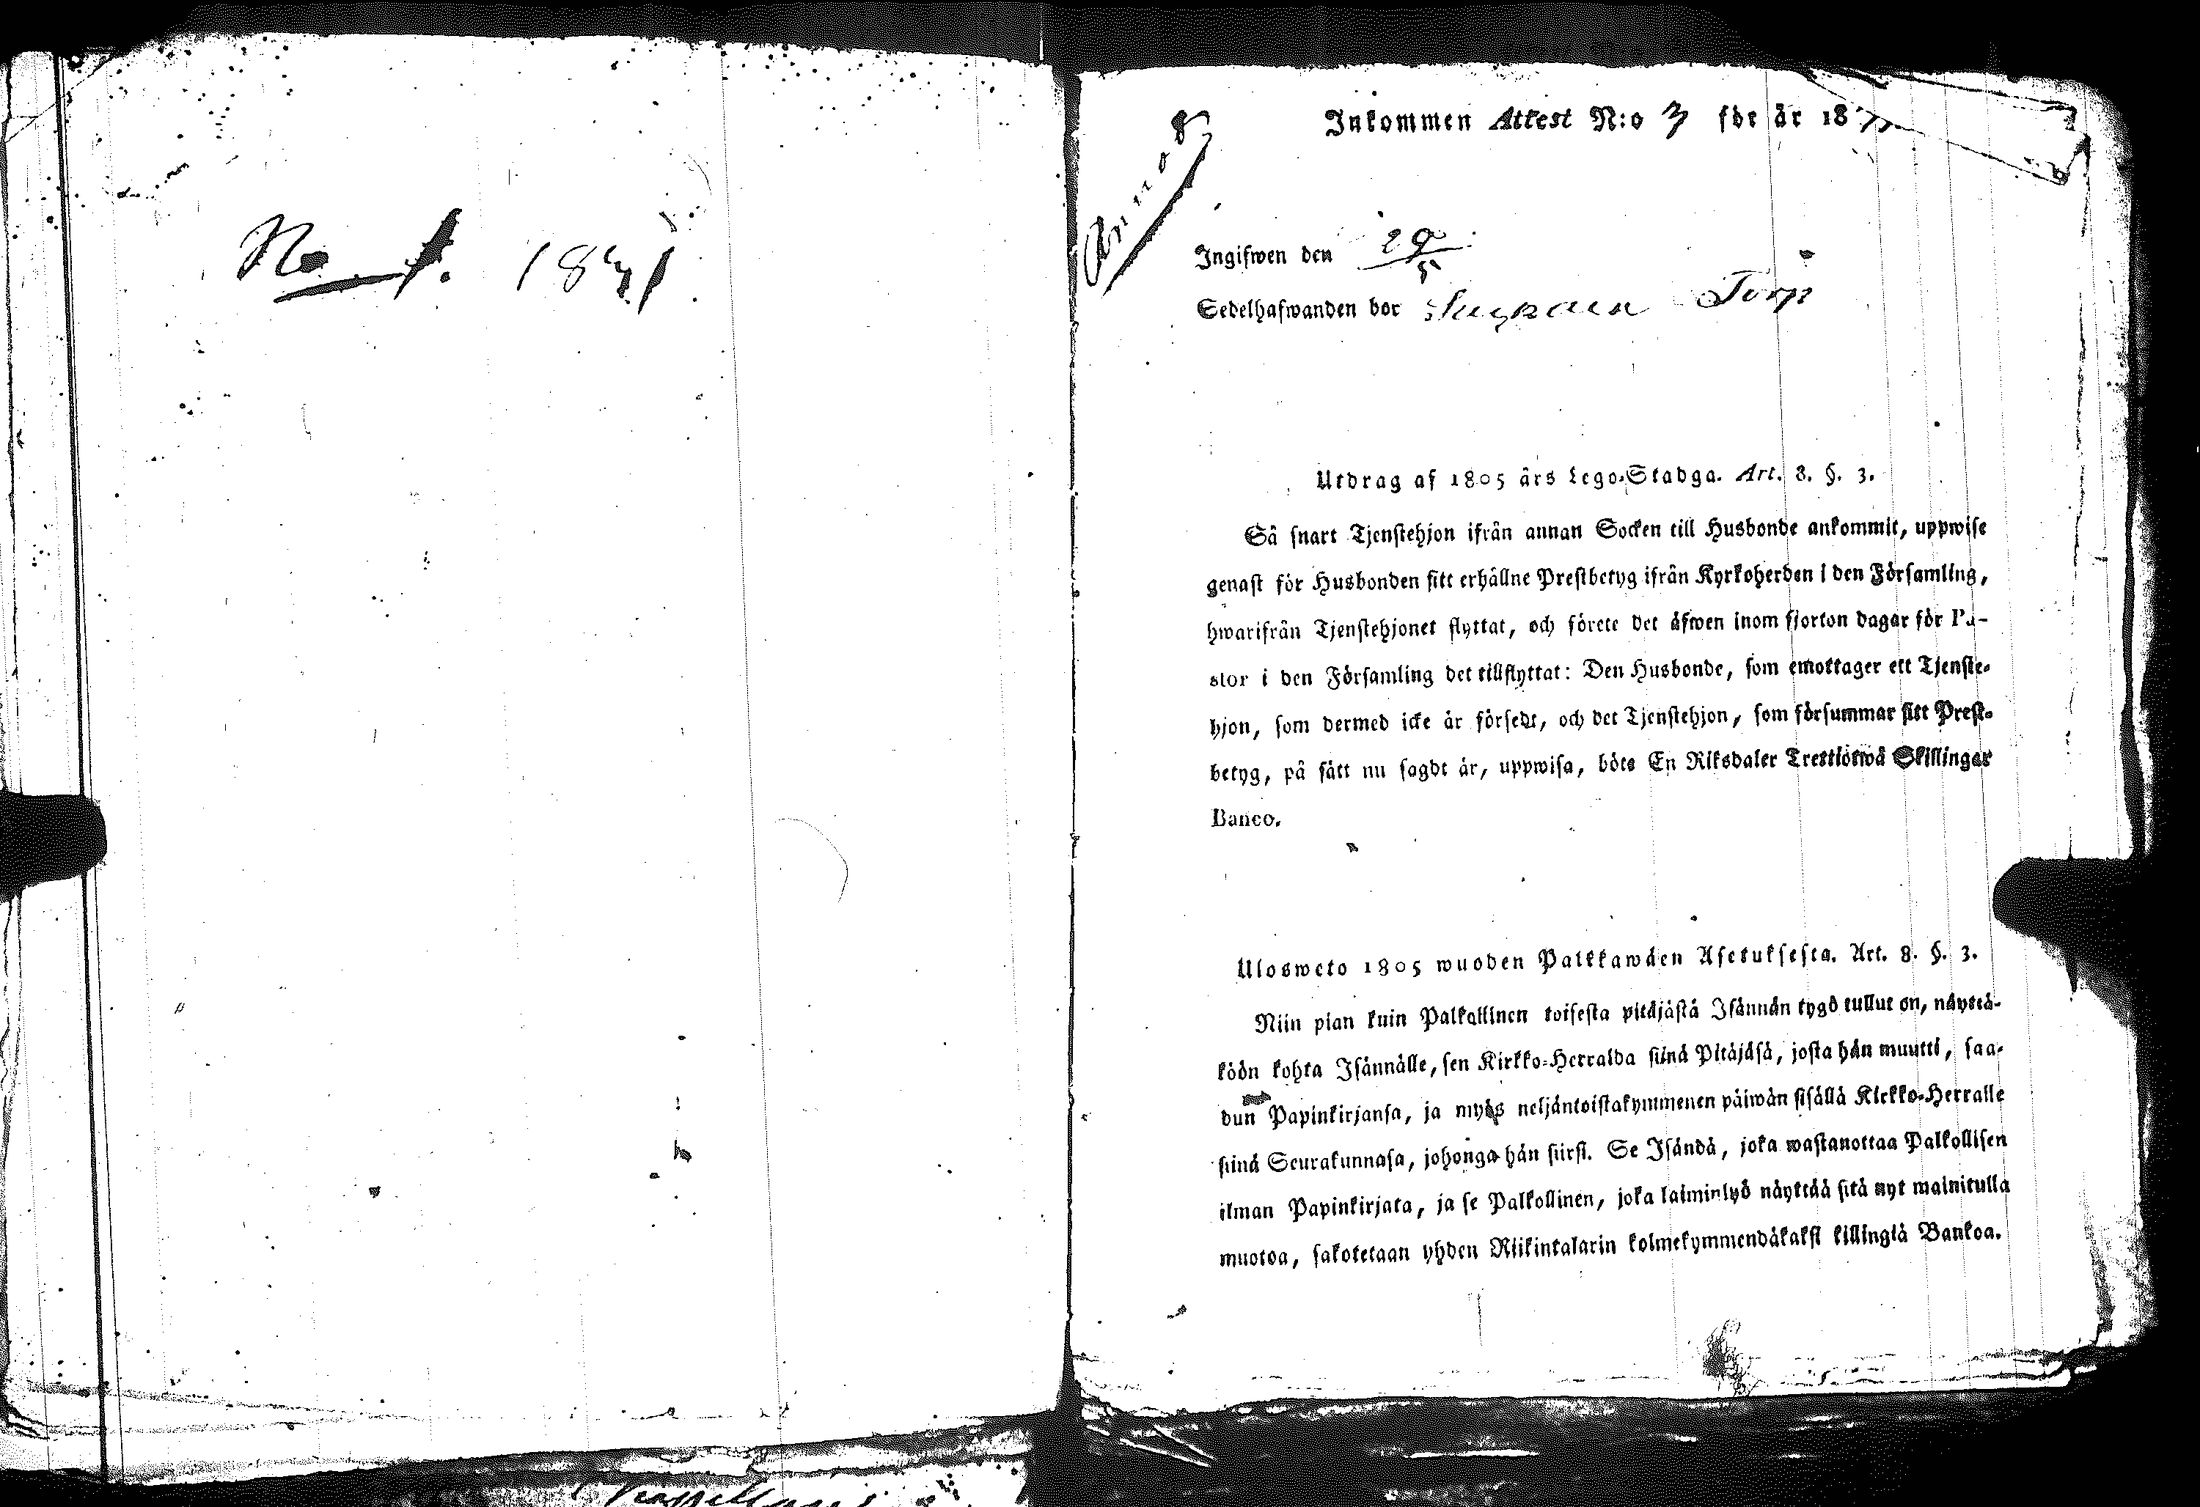 No 1. 1831
Inkommen Attest N:o 3 för år 18
Ingifwen den 29/5
Sedelhafwanden bor Torp
Utdrag af 1805 års Lego-Stadga. Art. 8. §. 3.
Så snart Tjenstehjon ifrån annan Socken till Husbonde ankommit, uppwise
genast för Husbonden sitt erhållne Prestbetyg ifrån Kyrkoherden i den Församling,
hwarifrån Tjenstehjonet flyttat, och förete det äfwen inom fjorton dagar för Pa-
stor i den Församling det tillflyttat: Den Husbonde, som emottager ett Tjenste-
hjon, som dermed icke är försedt, och det Tjenstehjon, som försummar sitt Prest-
betyg, på sätt nu sagdt är, uppwisa, böte En Riksdaler Trettiotwå Skillingar
Banco.
Ulosweto 1805 wuoden Palkkawäen Asetuksesta. Art. 8. §. 3.
Niin pian kuin Palkollinen toisesta pitäjästä Isännän tygö tullut on, näyttä-
köön kohta Isännälle, sen Kirkko-Herralda siinä Pitäjäsä, josta hän muutti, saa-
dun Papinkirjansa, ja myös neljäntoistakymmenen päiwän sisällä Kirkko-Herralle
siinä Seurakunnasa, johonga hän siirsi. Se Isändä, joka wastanottaa Palkollisen
ilman Papinkirjata, ja se Palkollinen, joka laiminlyö näyttää sitä nyt mainitulla
muotoa, sakotetaan yhden Riikintalarin kolmekymmendäkaksi killingiä Bankoa.